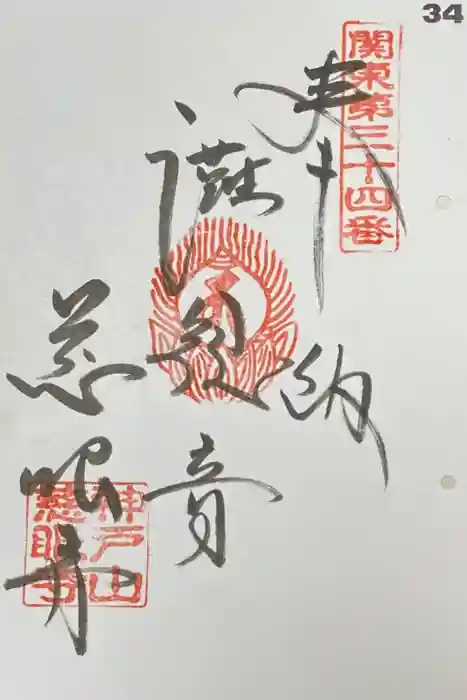 34
関東第三十四番
奉納
音
慈眼寺
神戸山
慈眼寺